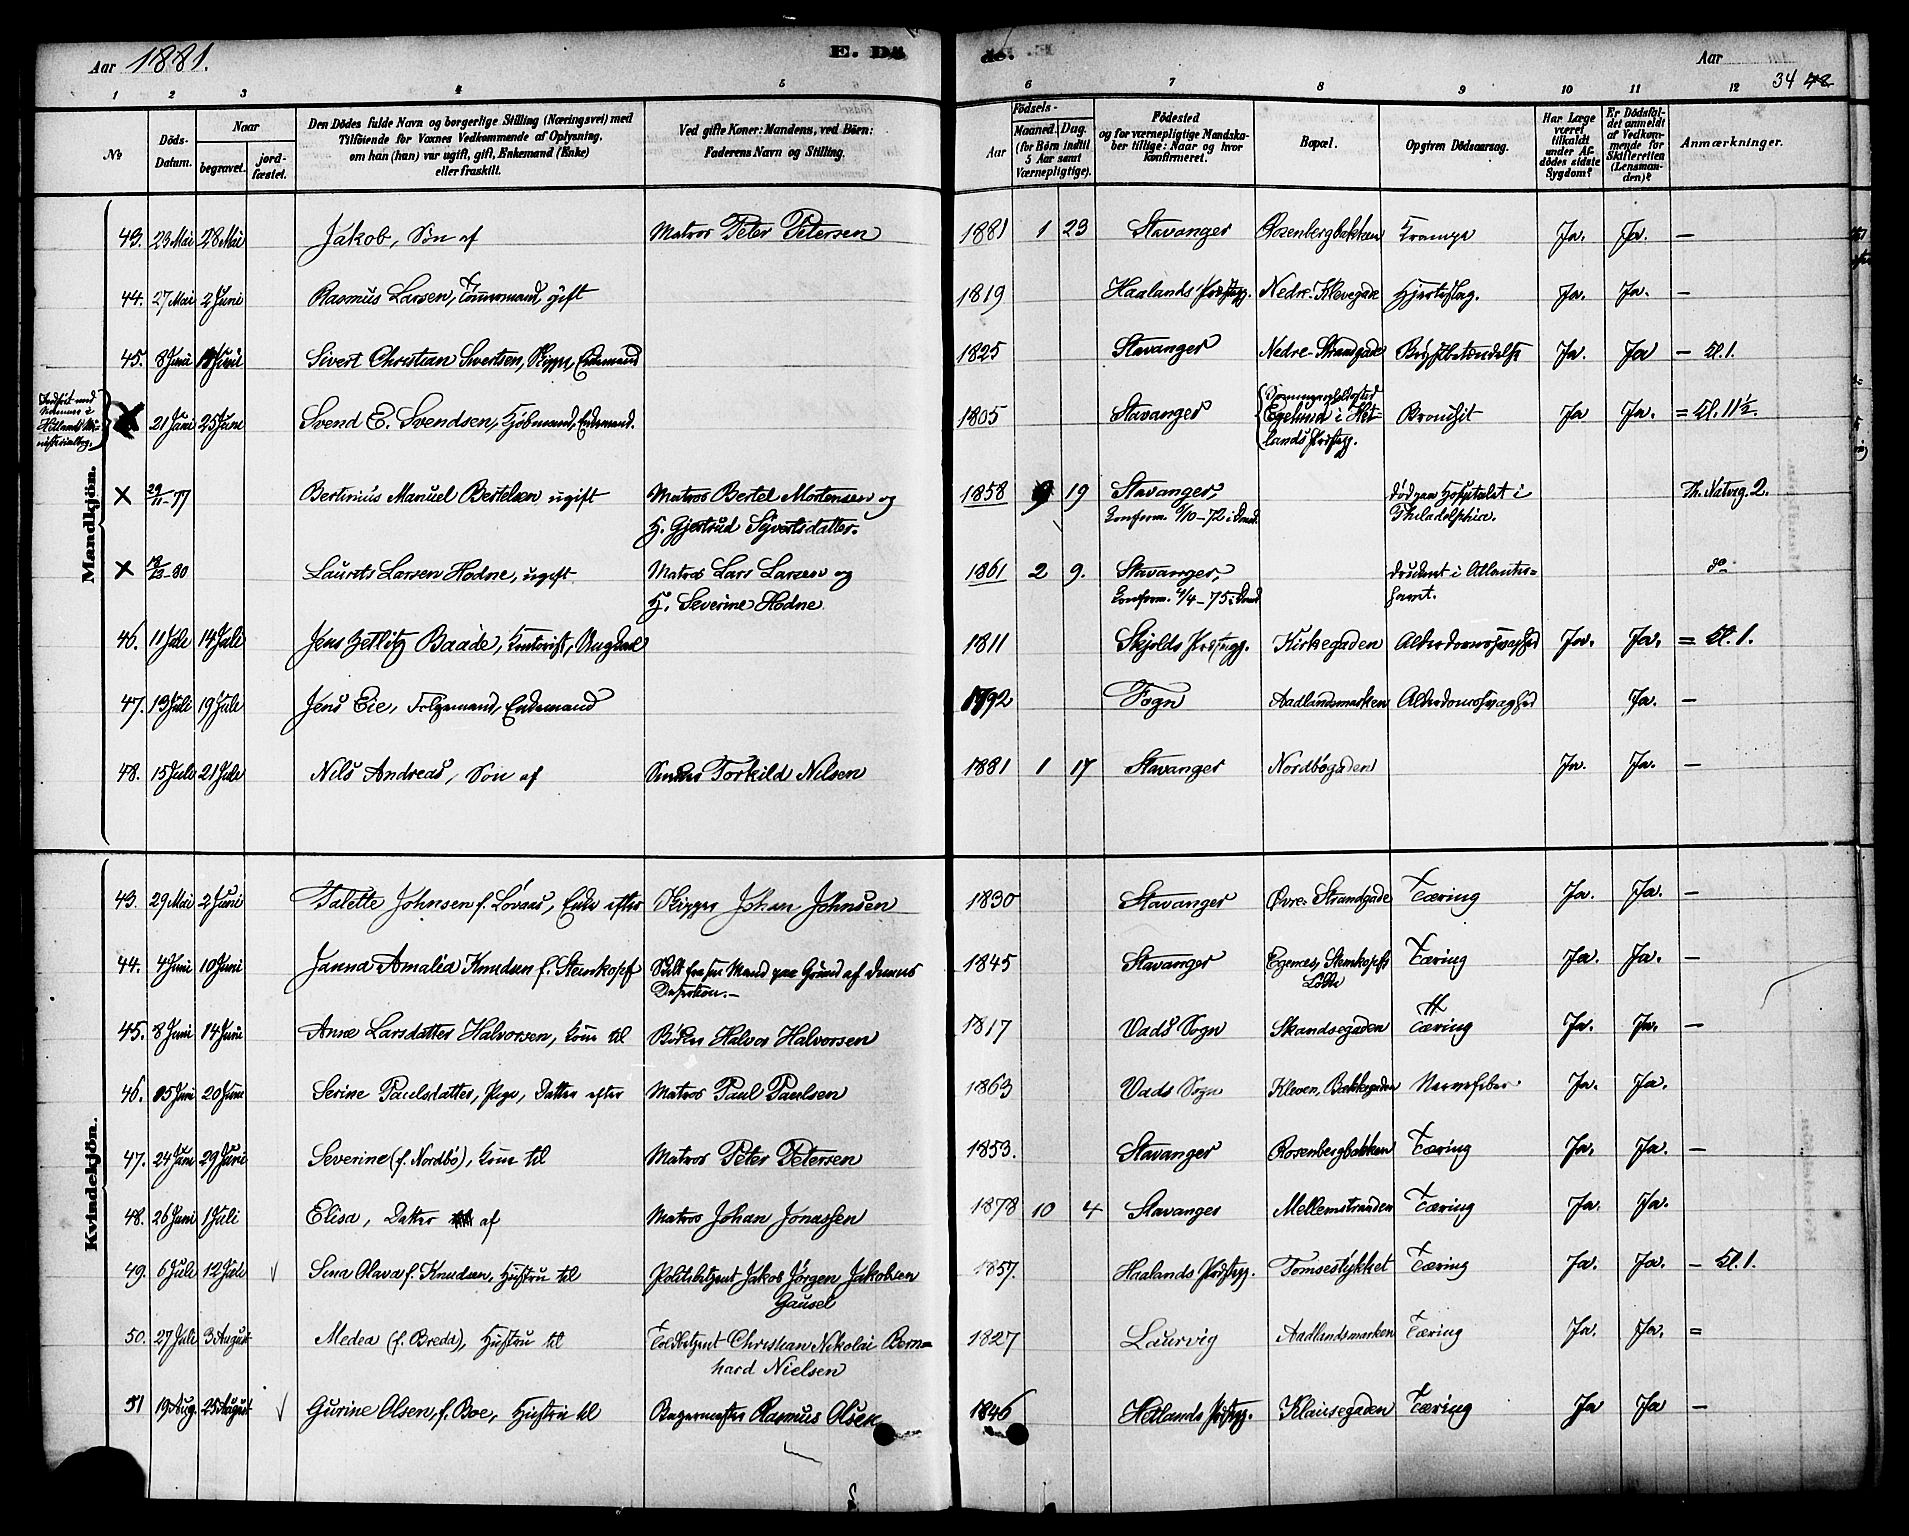 Aar 1881.
E. Dö
de.
Aar
34 48
1 2 3 4 5 6 7 8 9 10 11 12
№
Döds-Datum.
Naar
begravet.
jord-fæstet.
Den Dödes fulde Navn og borgerlige Stilling (Næringsvei) med
Tilföiende for Voxnes Vedkommende af Oplysning,
om han (hun) var ugift, gift, Enkemand (Enke)
eller fraskilt.
Ved gifte Koner: Mandens, ved Börn:
Faderens Navn og Stilling.
Födsels-
Aar
Maaned. Dag.
(for Börn indtil
5 Aar samt
Værnepligtige).
Födested
og for værnepligtige Mandska-
ber tillige: Naar og hvor
konfirmeret.
Bopæl.
Opgiven Dödsaarsag.
Har Læge
været
tilkaldt
under Af-
dödes sidste
Sygdom?
Er Dödsfal-
det anmeldt
af Vedkom-
mende for
Skifteretten
(Lensman-
den)?
Anmærkninger.
Mandkjön.
43. 23 Mai 28 Mai Jakob, Søn af Matros Peter Petersen 1881 1 23 Stavanger Rosenbergbakken Krampe Ja. Ja. —
44. 27 Mai 2 Juni Rasmus Larsen, Tømmermand, gift 1819 Haalands Præstegj. Nedre Klevegade Hjerteslag. Ja. Ja. —
45. 8 Juni Juni Sivert Christian Sivertsen, Skipper, Enkemand 1825 Stavanger Nedre Strandgade Brystbetændelse Ja. Ja — Kl. 1.
21 Juni 25 Juni Svend E. Svendsen, Kjøbmand, Enkemand. 1805 Stavanger Egelund i Het-
lands Præstegj. Bronchit Ja Ja. = Kl. 11½.
× 29/11-77 Bertinius Manuel Bertelsen ugift Matros Bertel Mortensen og
H. Gjertrud Sijvertsdatter. 1858 9 19 Stavanger,
Konfirm. 6/10-72 i Domk. død paa Hospitalet i
Philadelphia. Th. Natvig 2.
× -80 Laurits Larsen Hodne, ugift Matros Lars Larsen og
H. Severine Hodne 1861 2 9. Stavanger,
Konfirm. 4/4-75 i Domk druknet i Atlanter-
havet. do
46. 11 Juli 14 Juli Jens Zetlitz Baade, Kontorist, Ungkarl 1811 Skjolds Præstegj. Kirkegaden Alderdomssvaghed Ja. Ja. = Kl. 1.
47. 13 Juli 19 Juli Jens Eie, Følgemand, Enkemand 1792 Fogn Aadlandsmarken Alderdomssvaghed Ja. —
48. 15 Juli 21 Juli Nils Andreas, Søn af Snedker Torkild Nilsen 1881 1 17 Stavanger Nordbøgaden Ja. Ja. —
Kvindekjön.
43. 29 Mai 2 Juni Talette Johnsen f. Løvaas, Enke efter Skipper Johan Johnsen 1830 Stavanger Øvre Strandgade Tæring Ja. Ja. —
44. 4 Juni 10 Juni Janna Amalia Knudsen f. Steinkopf Skilt fra sin Mand paa Grund af dennes
Desertion.— 1845 Stavanger Egenæs, Steinkopfs
Løkke Tæring Ja. Ja. —
45. 8 Juni 14 Juni Anne Larsdatter Halvorsen, Kone til Bødker Halvor Halvorsen 1817 Vads Sogn Skandsegaden Tæring Ja. Ja. —
46. 15 Juni 20 Juni Serine Paulsdatter, Pige, Datter efter Matros Paul Paulsen 1863 Vads Sogn Kleven, Bakkegaden Nervefeber Ja. Ja.
47. 24 Juni 29 Juni Severine (f. Nordbø), Kone til Matros Peter Petersen 1853. Stavanger Rosenbergbakken Tæring Ja. Ja. —
48. 26 Juni 1 Juli Elisa, Datter af Matros Johan Jonassen 1878 10 4 Stavanger Mellemstranden Tæring Ja. Ja.
49. 6 Juli 12 Juli Sina Olava f. Knudsen, Hustru til Politibetjent Jakob Jørgen Jakobsen
Gausel 1857. Haalands Præstegj. Tomsestykket Tæring Ja. Ja. — Kl. 1.
50. 27 Juli 3 August Medea (f. Bredd), Hustru til Toldbetjent Christian Nikolai Bern-
hard Nielsen 1827 Laurvig Aadlandsmarken Tæring Ja. Ja. =
51 19 Aug. 25 August Gurine Olsen, f. Boe, Hustru til Bagermester Rasmus Olsen 1846 Hetlands Præstegj. Klausegaden Tæring Ja Ja —